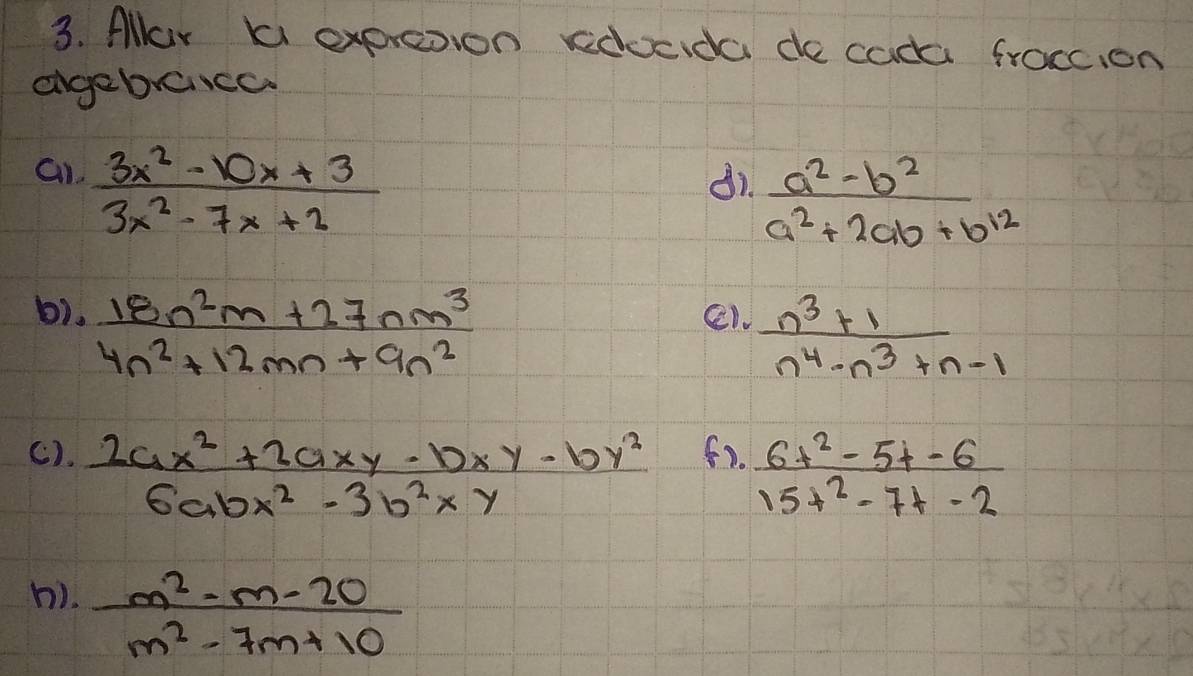 3. Allar la expresion redocida de cada fraccion
algebraica
a). (3x² - 10x + 3) / (3x² - 7x + 2)
d). (a² - b²) / (a² + 2ab + b¹²)
b). (18n²m + 27nm³) / (4n² + 12mn + 9n²)
e). (n³ + 1) / (n⁴ - n³ + n - 1)
c). (2ax² + 2axy - bxy - by²) / (6abx² - 3b²xy)
f). (6t² - 5t - 6) / (15t² - 7t - 2)
h). (m² - m - 20) / (m² - 7m + 10)